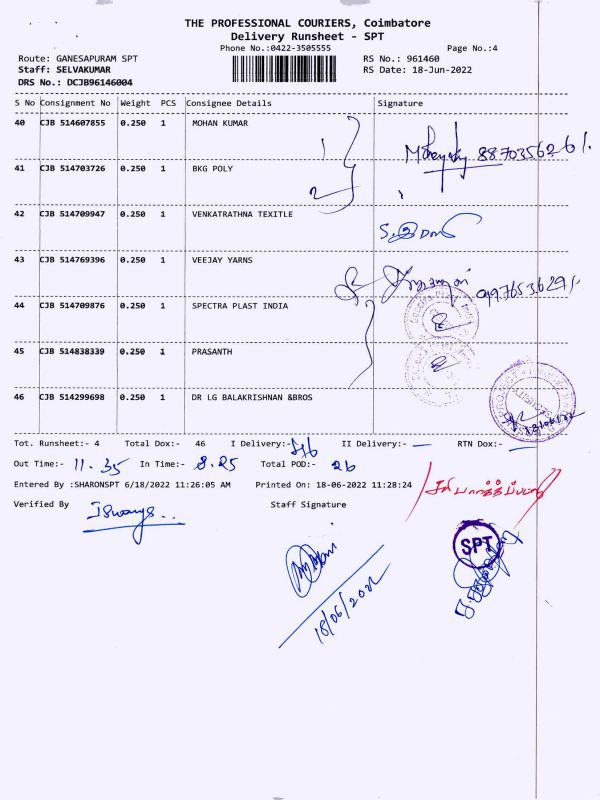 THE PROFESSIONAL COURIERS, Coimbatore
Delivery Runsheet - SPT
Phone No.:0422-3505555 Page No.:4
Route: GANESAPURAM SPT RS No.: 961460
Staff: SELVAKUMAR RS Date: 18-Jun-2022
DRS No.: DCJB96146004
S No Consignment No Weight PCS Consignee Details Signature
40 CJB 514607855 0.250 1 MOHAN KUMAR
41 CJB 514703726 0.250 1 BKG POLY
42 CJB 514709947 0.250 1 VENKATRATHNA TEXITLE
43 CJB 514769396 0.250 1 VEEJAY YARNS
44 CJB 514709876 0.250 1 SPECTRA PLAST INDIA
45 CJB 514838339 0.250 1 PRASANTH
46 CJB 514299698 0.250 1 DR LG BALAKRISHNAN &BROS
Tot. Runsheet:- 4 Total Dox:- 46 I Delivery:- II Delivery:- — RTN Dox:- —
Out Time:- 11.35 In Time:- 8.25 Total POD:- 26
Entered By :SHARONSPT 6/18/2022 11:26:05 AM Printed On: 18-06-2022 11:28:24
Verified By Staff Signature
SPT
18/06/2022